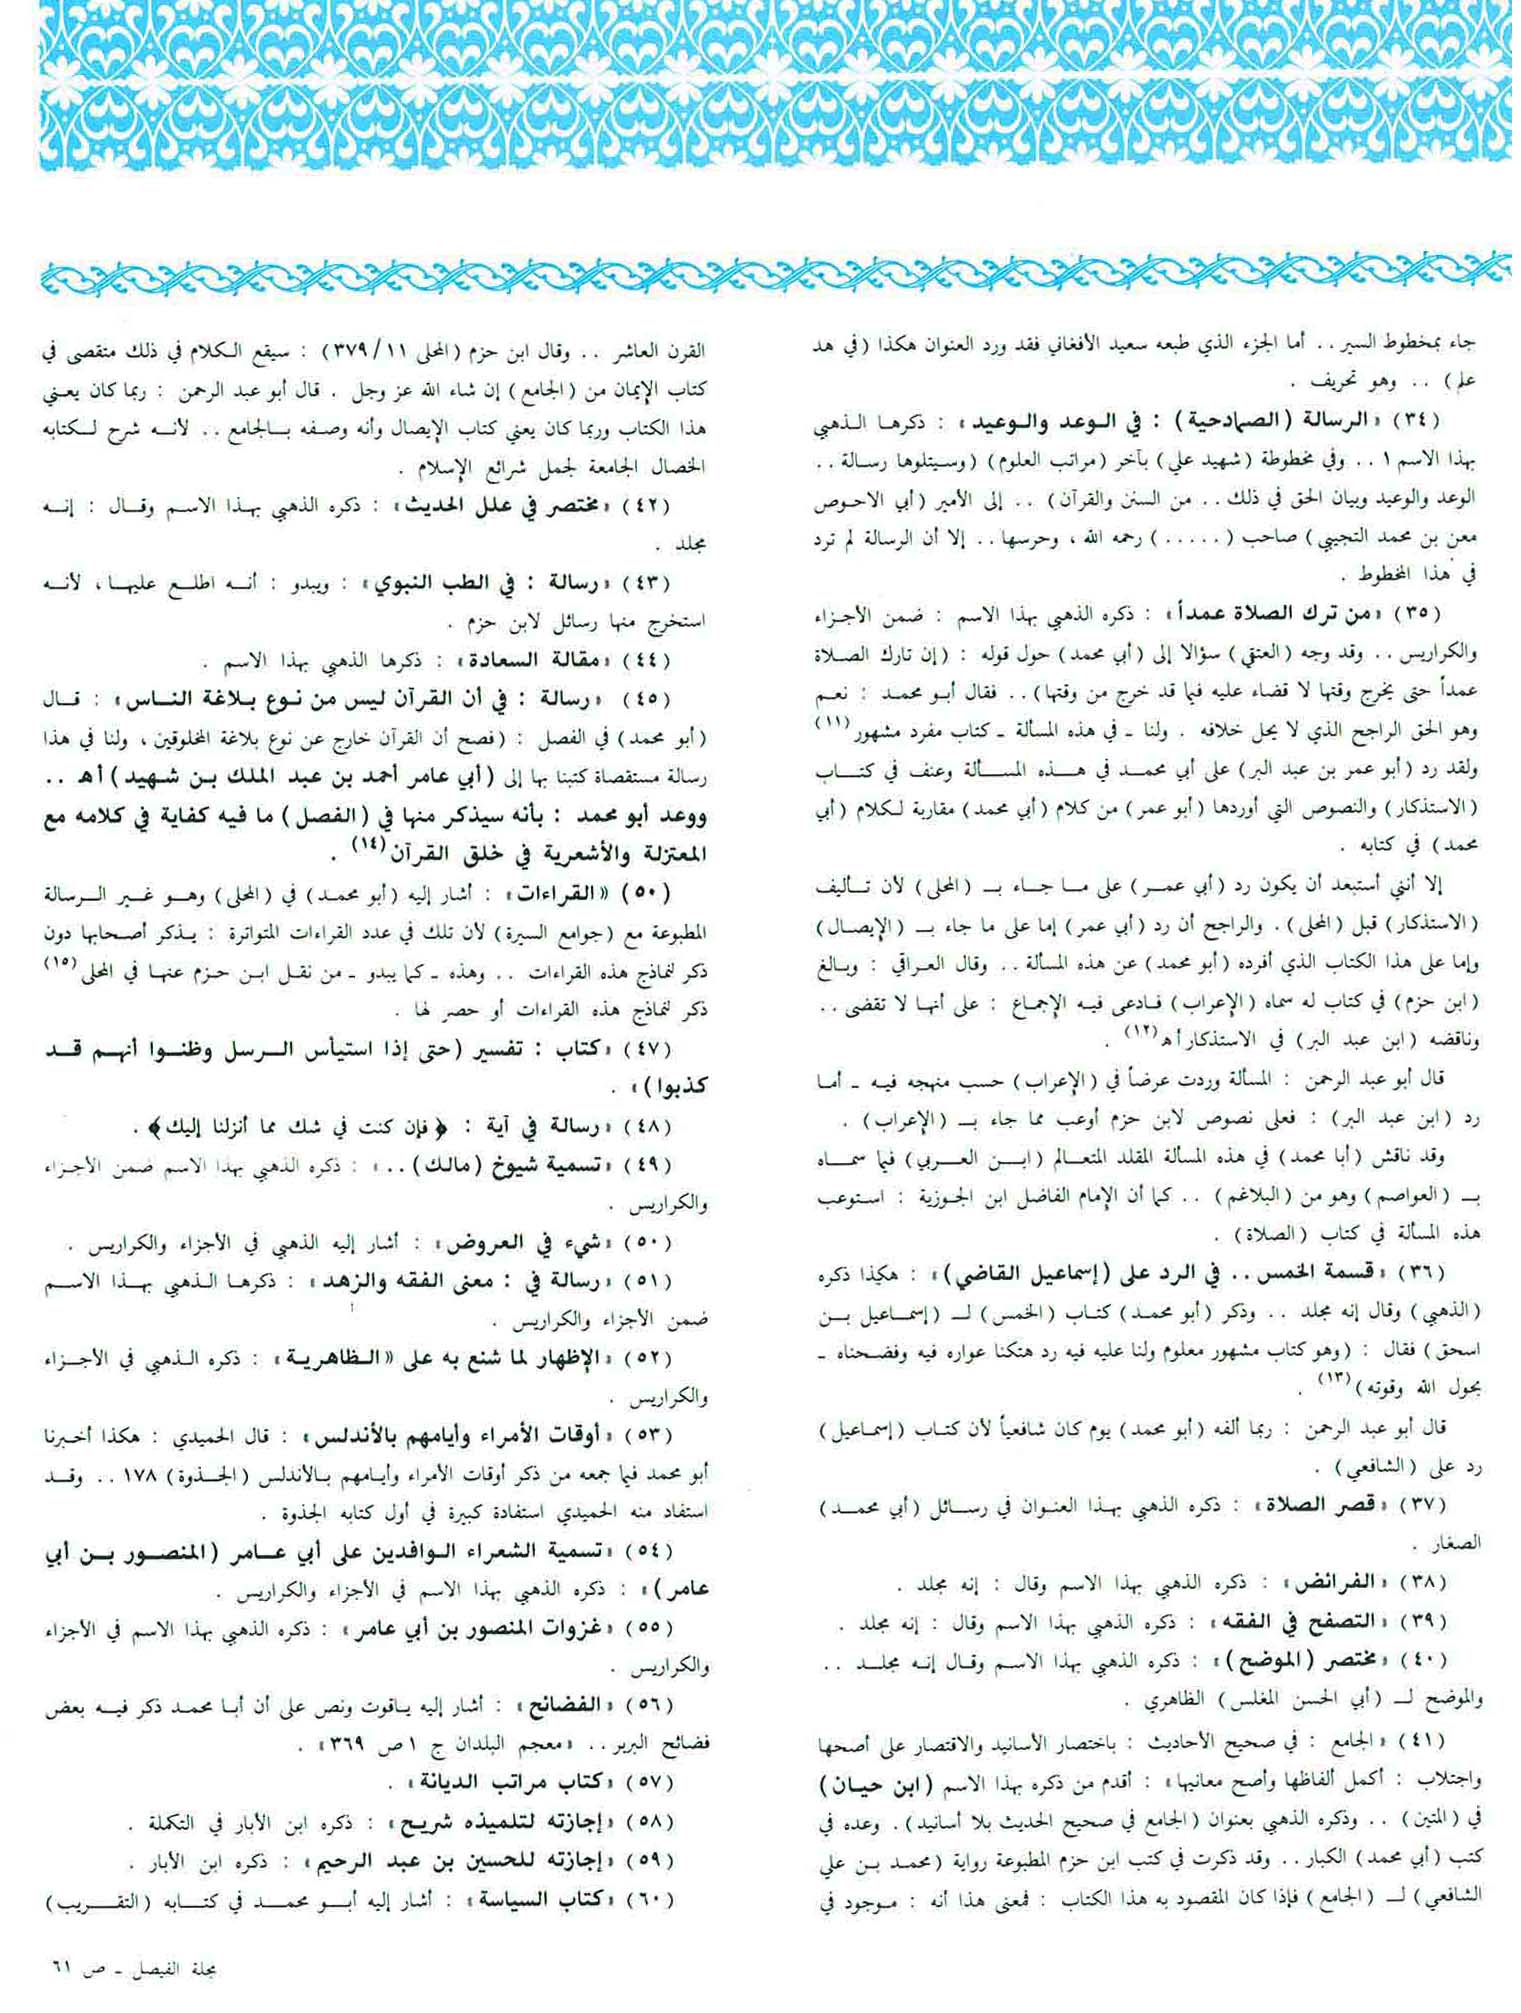 جاء بمخطوط السير .. أما الجزء الذي طبعه سعيد الأفغاني فقد ورد العنوان هكذا (في هد
علم) .. وهو تحريف .
(٣٤) «الرسالة (الصمادحية) : في الوعد والوعيد» : ذكرها الذهبي
بهذا الاسم ١ .. وفي مخطوطة (شهيد علي) بآخر (مراتب العلوم) (وسيتلوها رسالة ..
الوعد والوعيد وبيان الحق في ذلك .. من السنن والقرآن) .. إلى الأمير (أبي الاحوص
معن بن محمد التجيبي) صاحب (.....) رحمه الله ، وحرسها .. إلا أن الرسالة لم ترد
في هذا المخطوط .
(٣٥) «من ترك الصلاة عمداً» : ذكره الذهبي بهذا الاسم : ضمن الأجزاء
والكراريس .. وقد وجه (العتقي) سؤالا إلى (أبي محمد) حول قوله : (إن تارك الصلاة
عمداً حتى يخرج وقتها لا قضاء عليه فيما قد خرج من وقتها) .. فقال أبو محمد : نعم
وهو الحق الراجح الذي لا يحل خلافه . ولنا ـ في هذه المسألة ـ كتاب مفرد مشهور (١١)
ولقد رد (أبو عمر بن عبد البر) على أبي محمد في هذه المسألة وعنف في كتاب
(الاستذكار) والنصوص التي أوردها (أبو عمر) من كلام (أبي محمد) مقاربة لكلام (أبي
محمد) في كتابه .
إلا أنني أستبعد أن يكون رد (أبي عمر) على ما جاء بـ (المحلى) لأن تأليف
(الاستذكار) قبل (المحلى) . والراجح أن رد (أبي عمر) إما على ما جاء بـ (الإيصال)
وإما على هذا الكتاب الذي أفرده (أبو محمد) عن هذه المسألة .. وقال العراقي : وبالغ
(ابن حزم) في كتاب له سماه (الإعراب) فادعى فيه الإجماع : على أنها لا تقضى ..
وناقضه (ابن عبد البر) في الاستذكار أهـ (١٢) .
قال أبو عبد الرحمن : المسألة وردت عرضاً في (الإعراب) حسب منهجه فيه ـ أما
رد (ابن عبد البر) : فعلى نصوص لابن حزم أوعب مما جاء بـ (الإعراب) .
وقد ناقش (أبا محمد) في هذه المسألة المقلد المتعالم (ابن العربي) فيما سماه
بـ (العواصم) وهو من (البلاغم) .. كما أن الإمام الفاضل ابن الجوزية : استوعب
هذه المسألة في كتاب (الصلاة) .
(٣٦) «قسمة الخمس .. في الرد على (إسماعيل القاضي)» : هكذا ذكره
(الذهبي) وقال إنه مجلد .. وذكر (أبو محمد) كتاب (الخمس) لـ (إسماعيل بن
اسحق) فقال : (وهو كتاب مشهور معلوم ولنا عليه فيه رد هتكنا عواره فيه وفضحناه ـ
بحول الله وقوته) (١٣) .
قال أبو عبد الرحمن : ربما ألفه (أبو محمد) يوم كان شافعياً لأن كتاب (إسماعيل)
رد على (الشافعي) .
(٣٧) «قصر الصلاة» : ذكره الذهبي بهذا العنوان في رسائل (أبي محمد)
الصغار .
(٣٨) «الفرائض» : ذكره الذهبي بهذا الاسم وقال : إنه مجلد .
(٣٩) «التصفح في الفقه» : ذكره الذهبي بهذا الاسم وقال : إنه مجلد .
(٤٠) «مختصر (الموضح)» : ذكره الذهبي بهذا الاسم وقال إنه مجلد ..
والموضح لـ (أبي الحسن المغلس) الظاهري .
(٤١) «الجامع : في صحيح الأحاديث : باختصار الأسانيد والاقتصار على أصحها
واجتلاب : أكمل ألفاظها وأصح معانيها» : أقدم من ذكره بهذا الاسم (ابن حيان)
في (المتين) .. وذكره الذهبي بعنوان (الجامع في صحيح الحديث بلا أسانيد) . وعده في
كتب (أبي محمد) الكبار .. وقد ذكرت في كتب ابن حزم المطبوعة رواية (محمد بن علي
الشافعي) لـ (الجامع) فإذا كان المقصود به هذا الكتاب : فمعنى هذا أنه : موجود في
القرن العاشر .. وقال ابن حزم (المحلى ١١/٣٧٩) : سيقع الكلام في ذلك متقصى في
كتاب الإيمان من (الجامع) إن شاء الله عز وجل . قال أبو عبد الرحمن : ربما كان يعني
هذا الكتاب وربما كان يعني كتاب الإيصال وأنه وصفه بالجامع .. لأنه شرح لكتابه
الخصال الجامعة لجمل شرائع الإسلام .
(٤٢) «مختصر في علل الحديث» : ذكره الذهبي بهذا الاسم وقال : إنه
مجلد .
(٤٣) «رسالة : في الطب النبوي» : ويبدو : أنه اطلع عليها ، لأنه
استخرج منها رسائل لابن حزم .
(٤٤) «مقالة السعادة» : ذكرها الذهبي بهذا الاسم .
(٤٥) «رسالة : في أن القرآن ليس من نوع بلاغة الناس» : قال
(أبو محمد) في الفصل : (فصح أن القرآن خارج عن نوع بلاغة المخلوقين ، ولنا في هذا
رسالة مستقصاة كتبنا بها إلى (أبي عامر أحمد بن عبد الملك بن شهيد) أهـ ..
ووعد أبو محمد : بأنه سيذكر منها في (الفصل) ما فيه كفاية في كلامه مع
المعتزلة والأشعرية في خلق القرآن (١٤) .
(٥٠) «القراءات» : أشار إليه (أبو محمد) في (المحلى) وهو غير الرسالة
المطبوعة مع (جوامع السيرة) لأن تلك في عدد القراءات المتواترة : يذكر أصحابها دون
ذكر لنماذج هذه القراءات .. وهذه ـ كما يبدو ـ من نقل ابن حزم عنها في المحلى (١٥)
ذكر لنماذج هذه القراءات أو حصر لها .
(٤٧) «كتاب : تفسير (حتى إذا استيأس الرسل وظنوا أنهم قد
كذبوا)» .
(٤٨) «رسالة في آية : ﴿فإن كنت في شك مما أنزلنا إليك﴾ .
(٤٩) «تسمية شيوخ (مالك) ..» : ذكره الذهبي بهذا الاسم ضمن الأجزاء
والكراريس .
(٥٠) «شيء في العروض» : أشار إليه الذهبي في الأجزاء والكراريس .
(٥١) «رسالة في : معنى الفقه والزهد» : ذكرها الذهبي بهذا الاسم
ضمن الأجزاء والكراريس .
(٥٢) «الإظهار لما شنع به على «الظاهرية» : ذكره الذهبي في الأجزاء
والكراريس .
(٥٣) «أوقات الأمراء وأيامهم بالأندلس» : قال الحميدي : هكذا أخبرنا
أبو محمد فيما جمعه من ذكر أوقات الأمراء وأيامهم بالأندلس (الجذوة) ١٧٨ .. وقد
استفاد منه الحميدي استفادة كبيرة في أول كتابه الجذوة .
(٥٤) «تسمية الشعراء الوافدين على أبي عامر (المنصور بن أبي
عامر)» : ذكره الذهبي بهذا الاسم في الأجزاء والكراريس .
(٥٥) «غزوات المنصور بن أبي عامر» : ذكره الذهبي بهذا الاسم في الأجزاء
والكراريس .
(٥٦) «الفضائح» : أشار إليه ياقوت ونص على أن أبا محمد ذكر فيه بعض
فضائح البربر .. «معجم البلدان ج ١ ص ٣٦٩» .
(٥٧) «كتاب مراتب الديانة» .
(٥٨) «إجازته لتلميذه شريح» : ذكره ابن الأبار في التكملة .
(٥٩) «إجازته للحسين بن عبد الرحيم» : ذكره ابن الأبار .
(٦٠) «كتاب السياسة» : أشار إليه أبو محمد في كتابه (التقريب)
مجلة الفيصل ـ ص ٦١